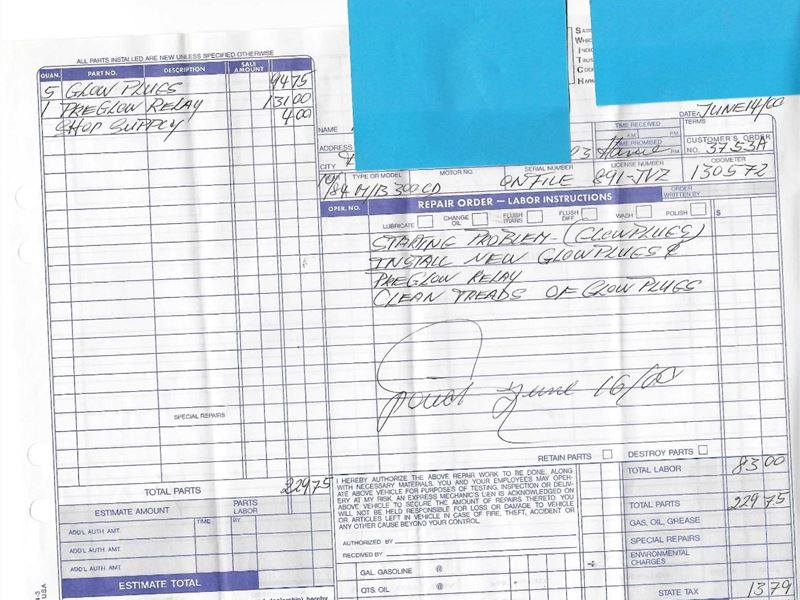 ALL PARTS INSTALLED ARE NEW UNLESS SPECIFIED OTHERWISE
QUAN. PART NO. DESCRIPTION SALE AMOUNT
5 GLOW PLUGS 94 75
1 PREGLOW RELAY 131 00
SHOP SUPPLY 4.00
SPECIAL REPAIRS
TOTAL PARTS 229 75
ESTIMATE AMOUNT PARTS LABOR
ADD'L AUTH. AMT. TIME BY
ADD'L AUTH. AMT.
ADD'L AUTH. AMT.
ESTIMATE TOTAL
S
W
I
T
C
H
DATE JUNE 14/00
NAME
TIME RECEIVED
A.M. P.M.
TERMS
ADDRESS
TIME PROMISED
A.M. P.M.
CUSTOMER'S ORDER NO. 3753A
CITY
TYPE OR MODEL
MOTOR NO.
SERIAL NUMBER
LICENSE NUMBER
ODOMETER
84 M/B 300 CD ON FILE 891-JVZ 130572
OPER. NO. REPAIR ORDER – LABOR INSTRUCTIONS
ORDER WRITTEN BY
LUBRICATE CHANGE OIL FLUSH TRANS FLUSH DIFF. WASH POLISH $
STARTING PROBLEM - (GLOWPLUGS)
INSTALL NEW GLOWPLUGS &
PREGLOW RELAY
CLEAN TREADS OF GLOW PLUGS
June 16/00
RETAIN PARTS DESTROY PARTS
I HEREBY AUTHORIZE THE ABOVE REPAIR WORK TO BE DONE, ALONG
WITH NECESSARY MATERIALS. YOU AND YOUR EMPLOYEES MAY OPER-
ATE ABOVE VEHICLE FOR PURPOSES OF TESTING, INSPECTION OR DELIV-
ERY AT MY RISK. AN EXPRESS MECHANIC'S LIEN IS ACKNOWLEDGED ON
ABOVE VEHICLE TO SECURE THE AMOUNT OF REPAIRS THERETO. YOU
WILL NOT BE HELD RESPONSIBLE FOR LOSS OR DAMAGE TO VEHICLE
OR ARTICLES LEFT IN VEHICLE IN CASE OF FIRE, THEFT, ACCIDENT OR
ANY OTHER CAUSE BEYOND YOUR CONTROL.
AUTHORIZED BY
RECEIVED BY
GAL. GASOLINE @
QTS. OIL @
TOTAL LABOR 83 00
TOTAL PARTS 229 75
GAS, OIL, GREASE
SPECIAL REPAIRS
ENVIRONMENTAL CHARGES
STATE TAX 13 79
USA